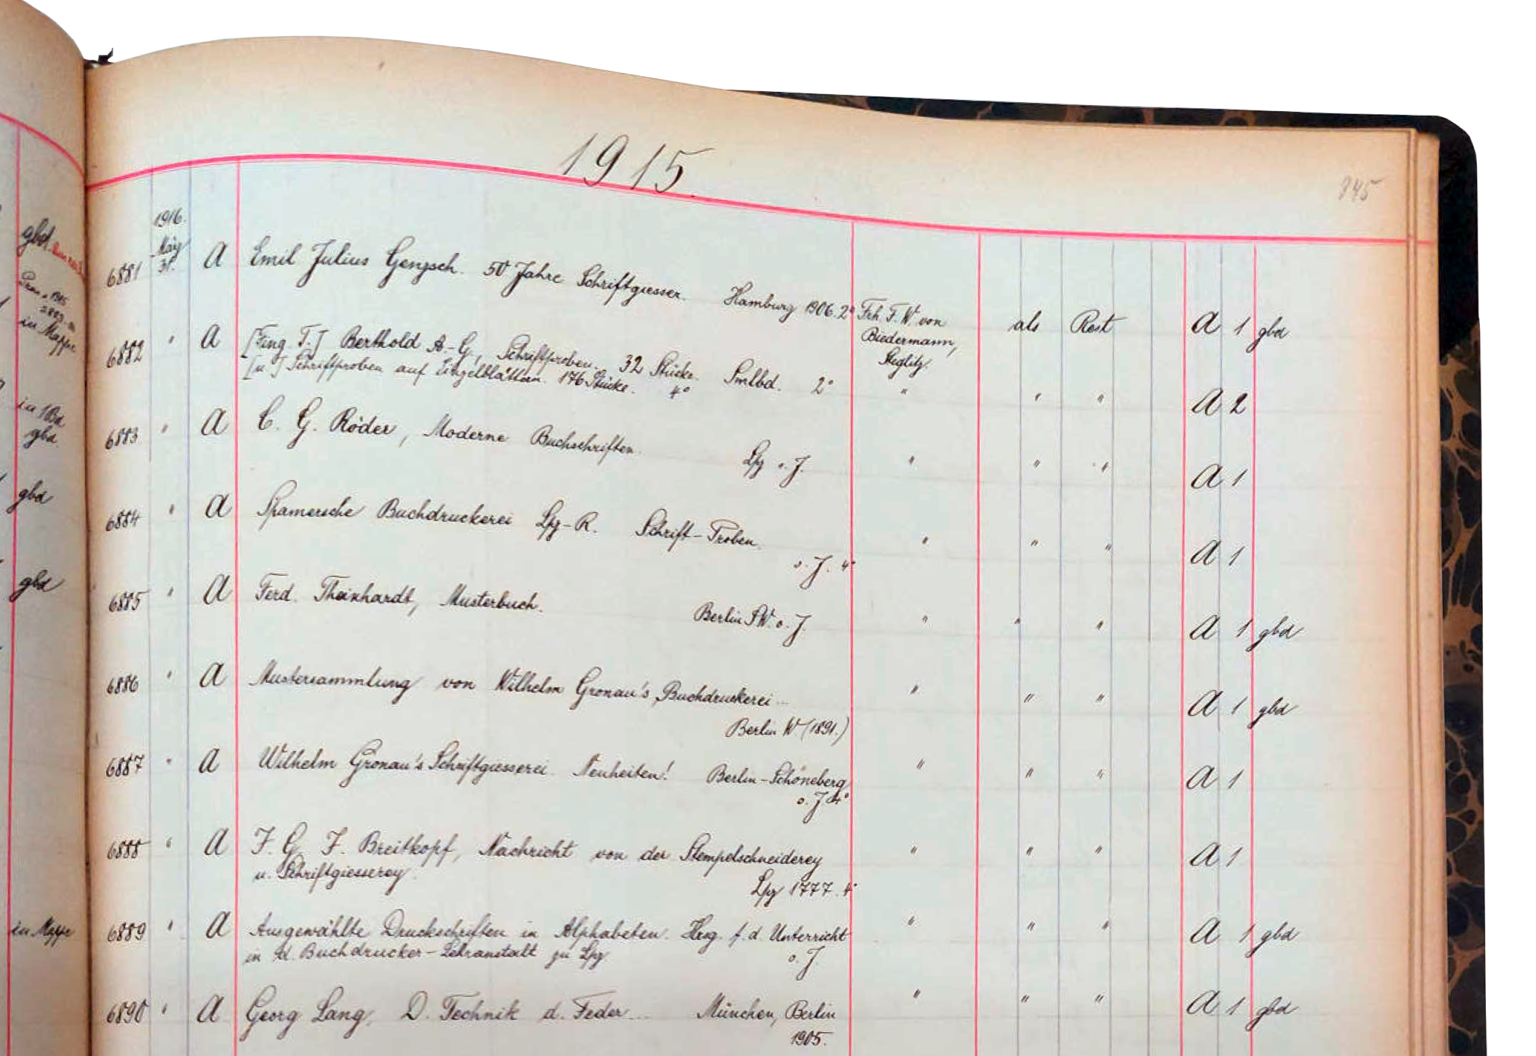 1915.
845
1916.
May
31.
6881 A Emil Julius Genzsch. 50 Jahre Schriftgiesser. Hamburg 1906. 2° Frh. F. W. von als Rest A 1 gbd
Biedermann,
Steglitz.
6882 " A [Eing. T.] Berthold A.-G., Schriftproben. 32 Stücke. Smlbd. 2° " " " A 2
[u.] Schriftproben auf Einzelblättern. 176 Stücke. 4°
6883 " A C. G. Röder, Moderne Buchschriften. Lpg o. J. " " " A 1
6884 " A Spamersche Buchdruckerei Lpg-R. Schrift-Proben. " " " A 1
o. J. 4°
6885 " A Ferd. Theinhardt, Musterbuch. Berlin SW. o. J. " " " A 1 gbd
6886 " A Mustersammlung von Wilhelm Gronau's Buchdruckerei... " " " A 1 gbd
Berlin W (1891.)
6887 " A Wilhelm Gronau's Schriftgiesserei. Neuheiten! Berlin-Schöneberg " " " A 1
o. J. 4°
6888 " A J. G. I. Breitkopf, Nachricht von der Stempelschneiderey " " " A 1
u. Schriftgiesserey. Lpg 1777. 4°
6889 " A Ausgewählte Druckschriften in Alphabeten. Hrsg. f. d. Unterricht " " " A 1 gbd
in d. Buchdrucker-Lehranstalt zu Lpg o. J.
6890 " A Georg Lang, D. Technik d. Feder... München, Berlin " " " A 1 gbd
1905.
gbd.
in Mappe
in 1 Bd
gbd
gbd
gbd
in Mappe